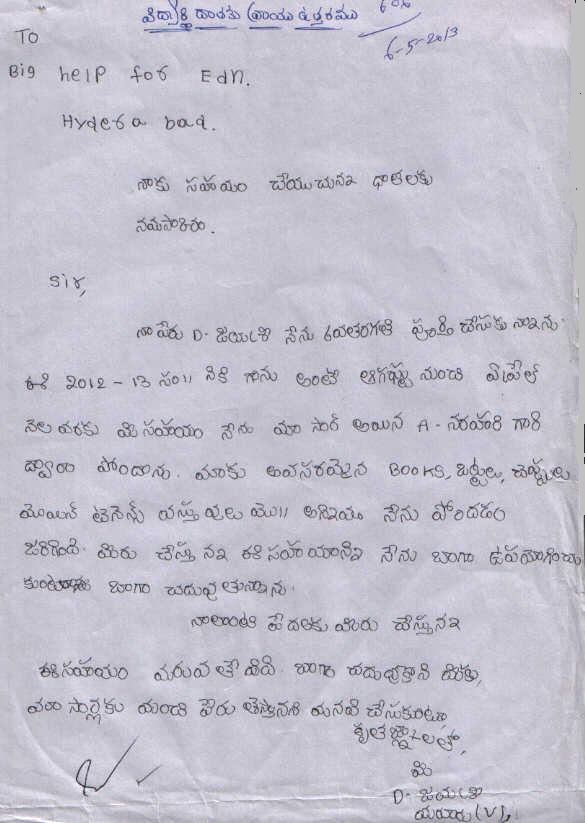 విద్యార్థి దాతకు వ్రాయు ఉత్తరము
6-5-2013
To
Big help for Edn.
Hyderabad.
నాకు సహాయం చేయుచున్న దాతలకు
నమస్కారం.
Sir,
నా పేరు D. జయశ్రీ నేను 6వతరగతి పూర్తి చేసుకున్నాను.
ఈ 2012-13 సం॥ నికి గాను అంటే ఆగష్టు నుండి ఏప్రిల్
నెల వరకు మీ సహాయం నేను మా సార్ అయిన A. నరహరి గారి
ద్వారా పొందాను. మాకు అవసరమైన Books, బట్టలు, చెప్పులు
మెయిన్ టెనెన్స్ వస్తువులు మొ॥ అన్నియు నేను పొందడం
జరిగింది. మీరు చేస్తున్న ఈ సహాయాన్ని నేను బాగా ఉపయోగించు
కుంటూ బాగా చదువుతున్నాను.
నాలాంటి పేదలకు మీరు చేస్తున్న
ఈ సహాయం మరువలేనిది. బాగా చదువుకొని మీకు,
మా సార్లకు మంచి పేరు తెస్తానని మనవి చేసుకుంటూ
కృతజ్ఞతలతో,
మీ
D. జయశ్రీ
(V),